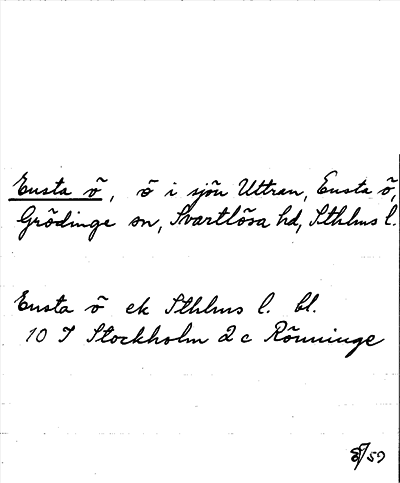 Eusta ö, ö i sjön Uttran, Eusta ö,
Grödinge sn, Svartlösa hd, Sthlms l.
Eusta ö ek Sthlms l. bl.
10 I Stockholm 2 c Rönninge
/59